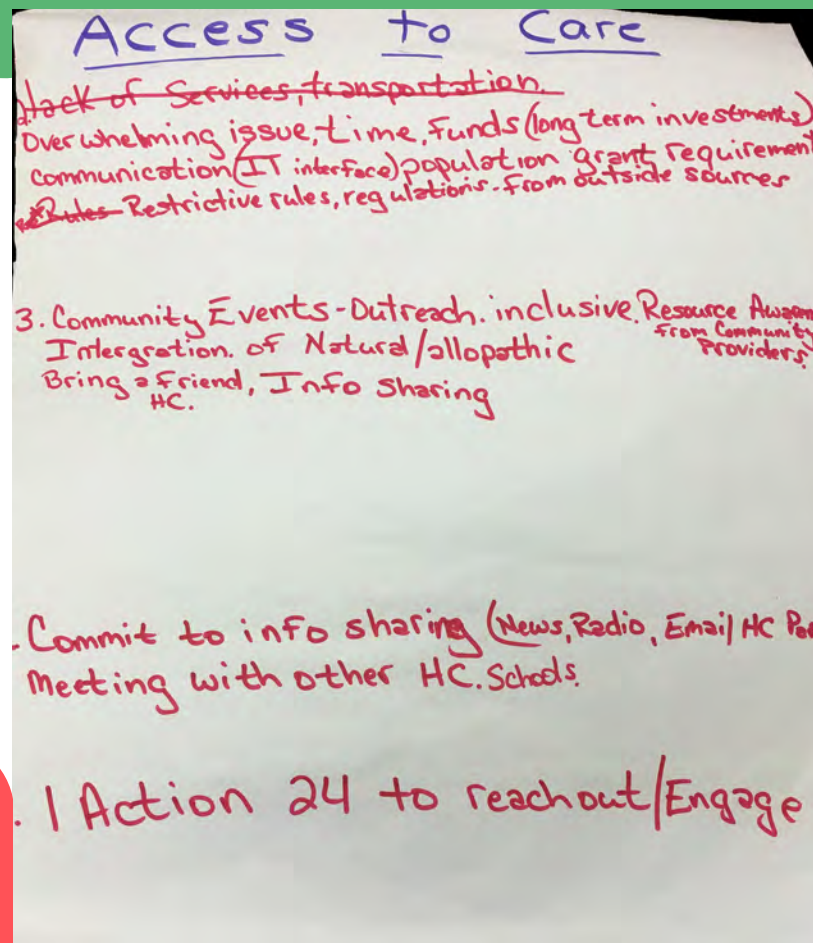 Access to Care
2. lack of Services, transportation.
Overwhelming issue, time, funds (long term investments)
communication (IT interface) population grant requirement
Rules Restrictive rules, regulations - from outside sources
3. Community Events - Outreach. inclusive. Resource
From Community
Intergration. of Natural/allopathic
Providers.
Bring a friend, Info Sharing
HC.
Commit to info sharing (News, Radio, Email HC
Meeting with other HC. Schools.
1 Action 24 to reach out/Engage